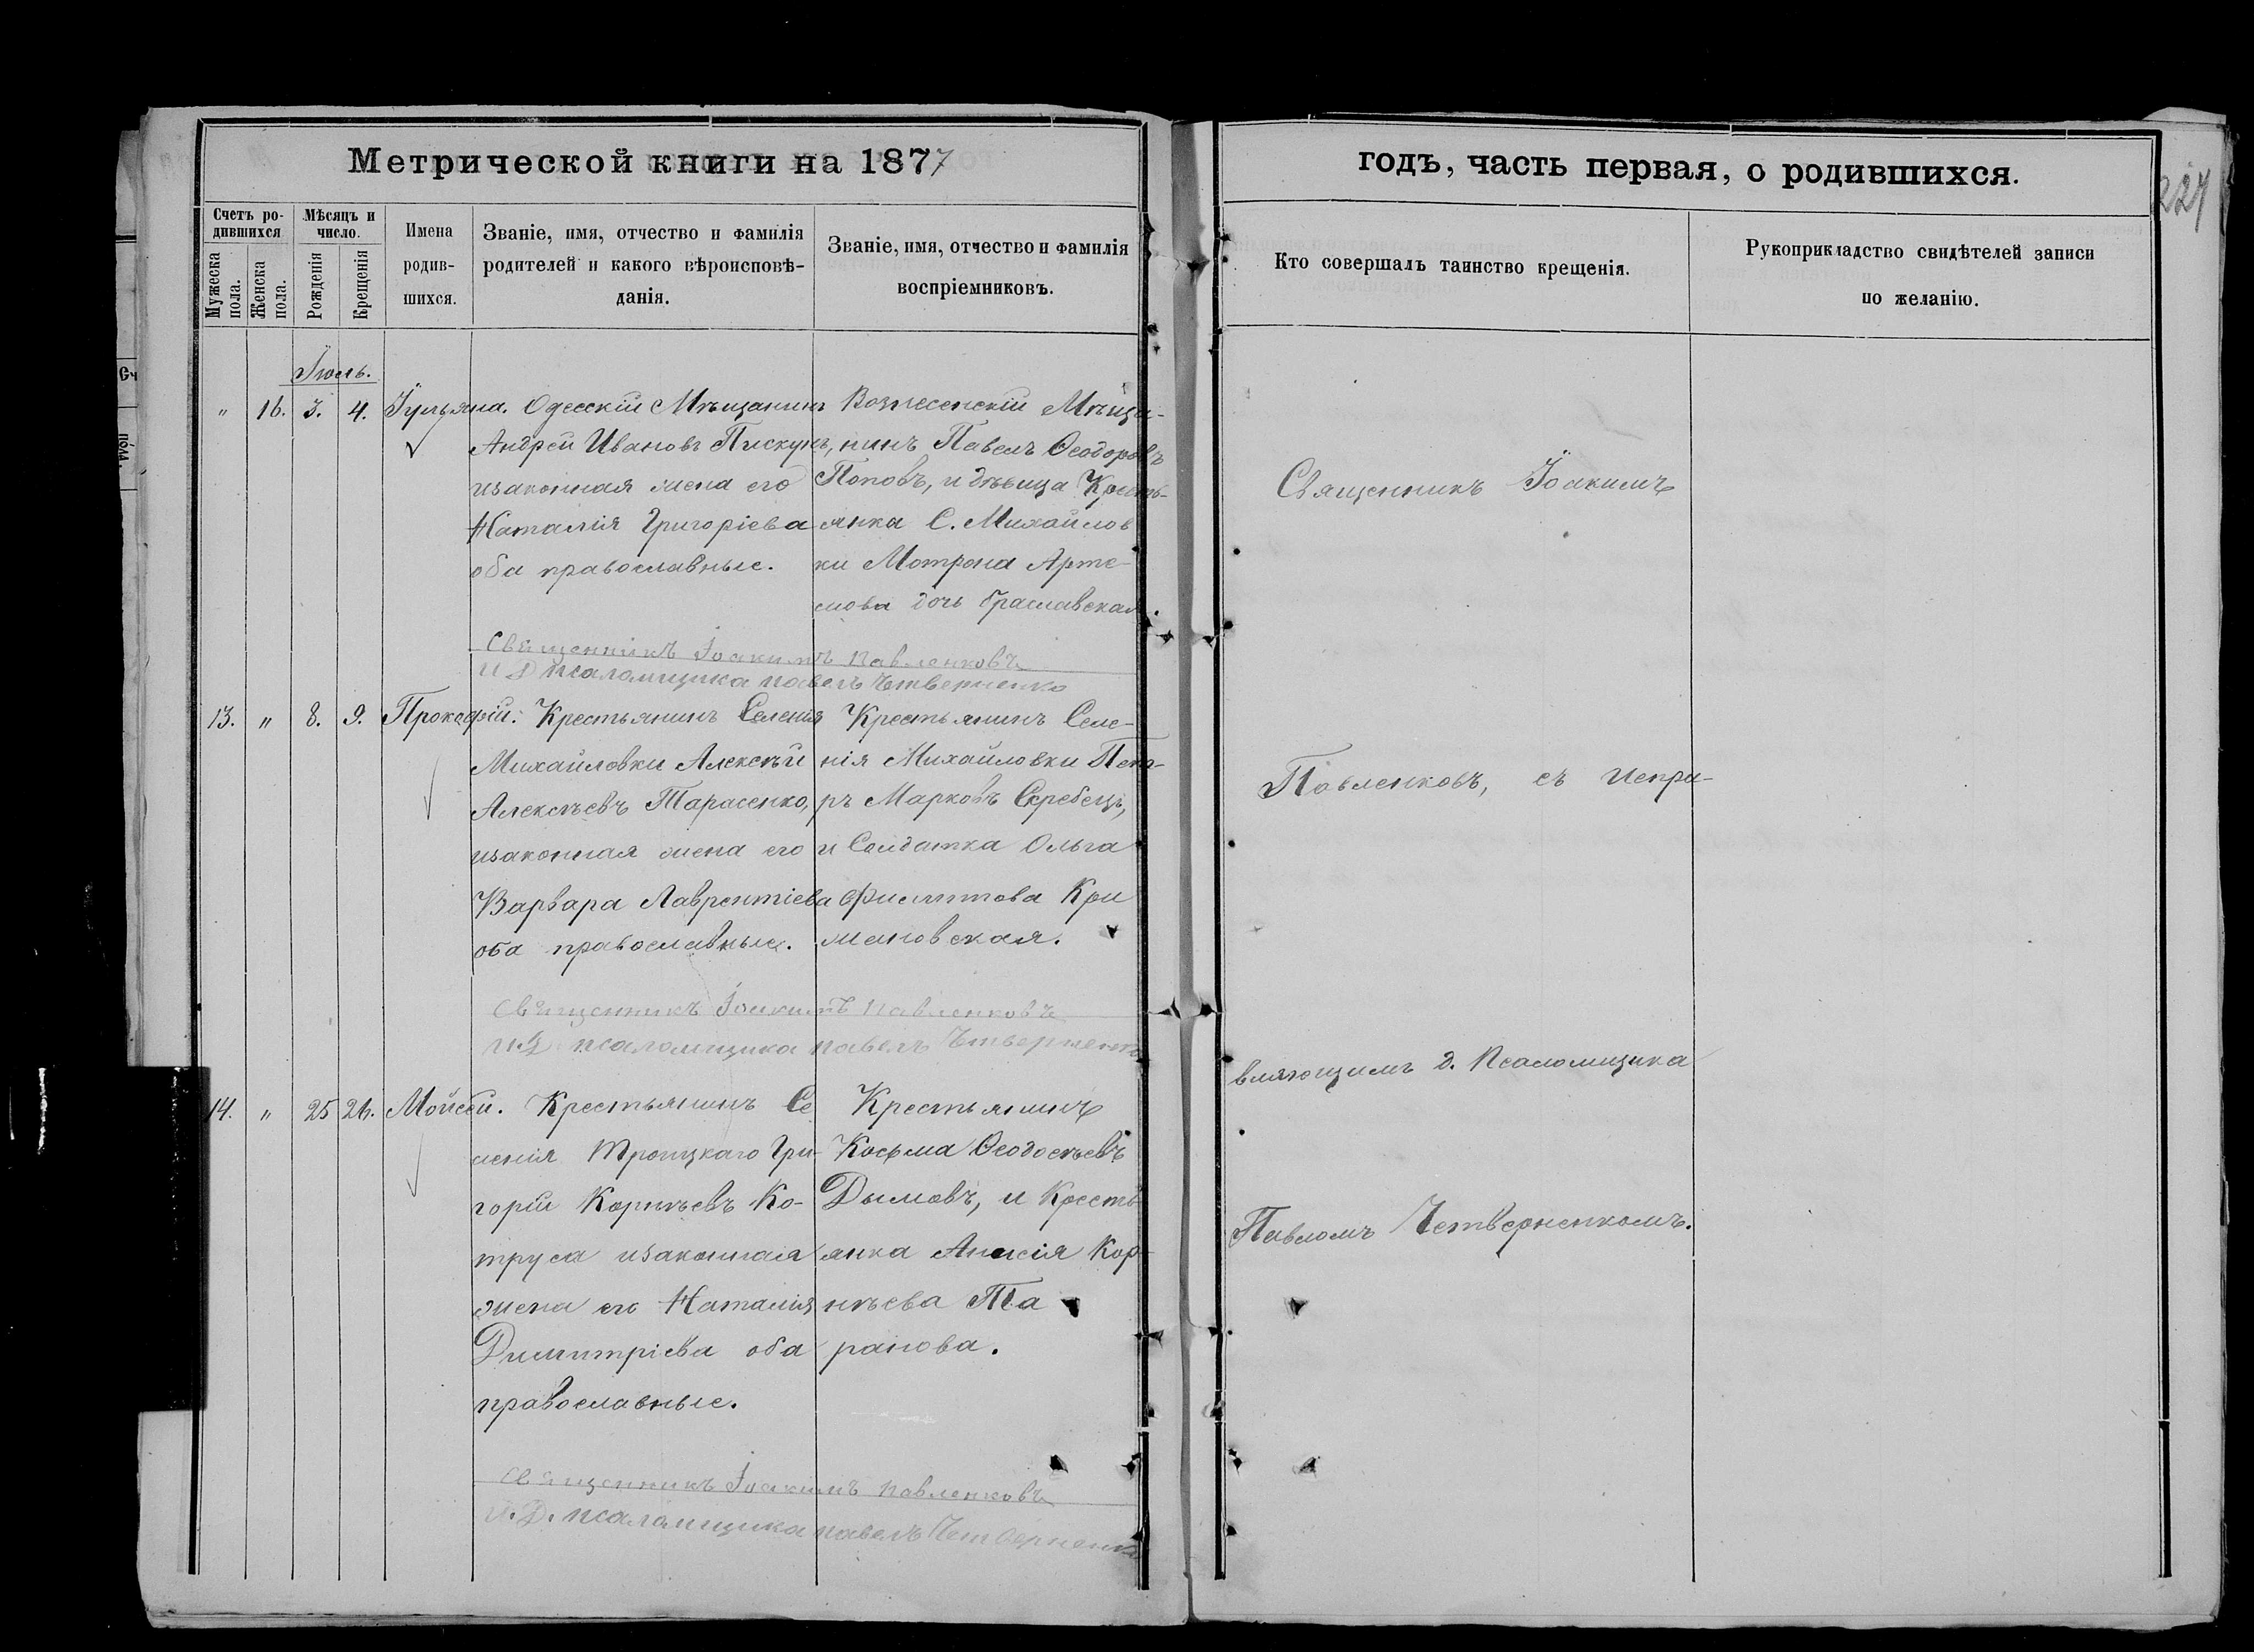 Метрической книги на 1877
Счетъ ро-
дившихся
Мѣсяцъ и
число.
Мужеска
пола.
Женска
пола.
Рожденія
Крещенія
Имена
родив-
шихся.
Званіе, имя, отчество и фамилія
родителей и какого вѣроисповѣ-
данія.
Званіе, имя, отчество и фамилія
воспріемниковъ.
Іюль.
" 16. 3. 4. Іульяна.
Одесскій Мѣщанинъ
Андрей Ивановъ Пискунъ,
изаконная жена его
Наталія Григоріева
оба православные.
Вознесенскій Мѣща-
нинъ Павелъ Ѳеодоровъ
Поповъ, и дѣвица Кресть-
янка С. Михайлов
ки Мотрона Арте-
мова дочь браславская.
Священникъ Іоакимъ Павленковъ
И Д псаломщика павелъ Четверненко
13. " 8. 9. Прокофій.
Крестьянинъ Селенія
Михайловки Алексѣй
Алексѣевъ Тарасенко,
изаконная жена его
Варвара Лаврентіева
оба православные.
Крестьянинъ Селе-
нія Михайловки Пет-
ръ Марковъ Скребецъ,
и Солдатка Ольга
Филиппова Кри
мановская.
Священникъ Іоакимъ Павленковъ
И.Д. псаломщика павелъ Четверненко
14. " 25 26. Мойсей.
Крестьянинъ Се
ленія Троицкаго Гри-
горій Корнѣевъ Ко-
труса изаконная
жена его Наталія
Димитріева оба
православные.
Крестьянинъ
Косьма Ѳеодосѣевъ
Дымовъ, и Кресть
янка Анисія Кор-
нѣева Та
ранова.
Священникъ Іоакимъ Павленковъ
И.Д. псаломщика павелъ Четверненко
годъ, часть первая, о родившихся.
227
Кто совершалъ таинство крещенія.
Рукоприкладство свидѣтелей записи
по желанію.
Священникъ Іоакимъ
Павленковъ, съ испра-
вляющимъ д. Псаломщика
Павломъ Четверненкомъ.